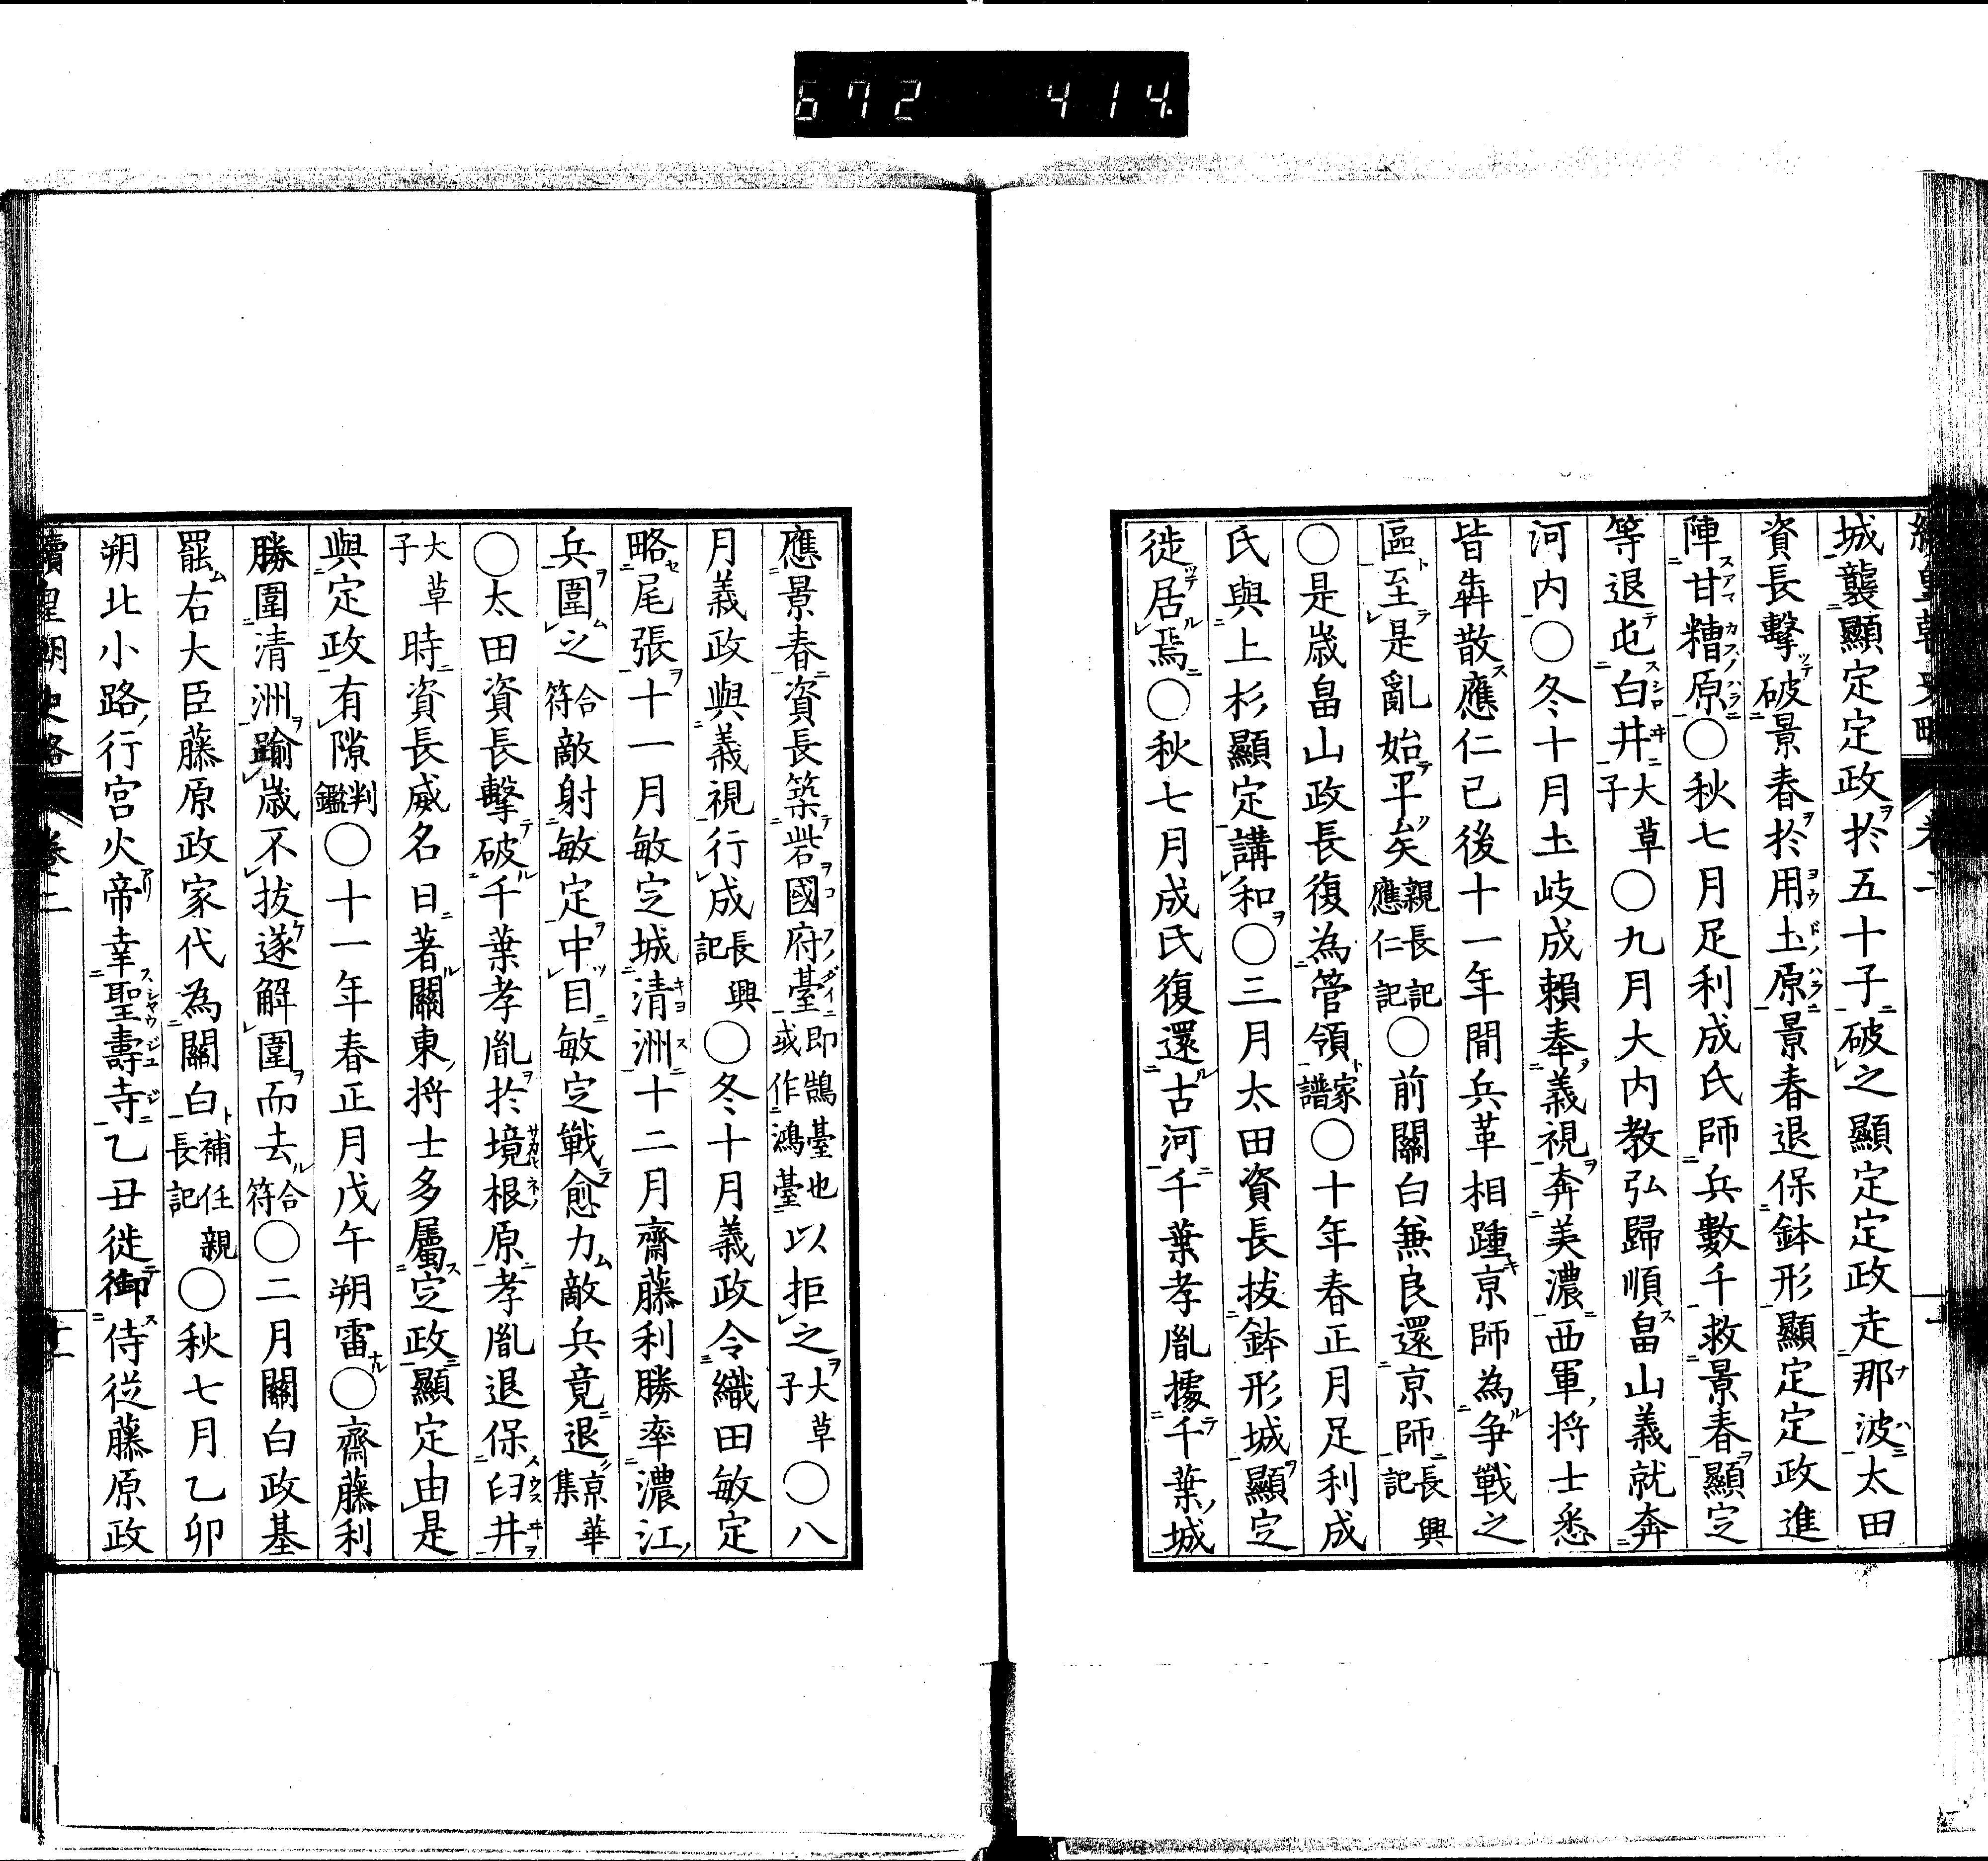 672 414
城襲顯定定政於五十子破之顯定定政走那波太田
資長擊破景春於用土原景春退保鉢形顯定定政進
陣甘糟原○秋七月足利成氏師兵數千救景春顯定
等退屯白井大草子○九月大内教弘歸順畠山義就奔
河内○冬十月土岐成賴奉義視奔美濃西軍將士悉
皆犇散應仁已後十一年間兵革相踵京師為争戰之
區至是亂始平矣親長記應仁記○前關白兼良還京師長興記
○是歳畠山政長復為管領家譜○十年春正月足利成
氏與上杉顯定講和○三月太田資長拔鉢形城顯定
徙居焉○秋七月成氏復還古河千葉孝胤據千葉城
應景春資長築砦國府臺即鵠臺也或作鴻臺以拒之大草子○八
月義政與義視行成長興記○冬十月義政令織田敏定
略尾張十一月敏定城清洲十二月齋藤利勝率濃江
兵圍之合符敵射敏定中目敏定戰愈力敵兵竟退京華集
○太田資長擊破千葉孝胤於境根原孝胤退保臼井
大草子時資長威名日著關東將士多屬定政顯定由是
與定政有隙判鑑○十一年春正月戊午朔雷○齋藤利
勝圍清洲踰歳不拔遂解圍而去合符○二月關白政基
罷右大臣藤原政家代為關白補任親長記○秋七月乙卯
朔北小路行宮火帝幸聖壽寺乙丑徙御侍從藤原政
續皇朝史略 卷二